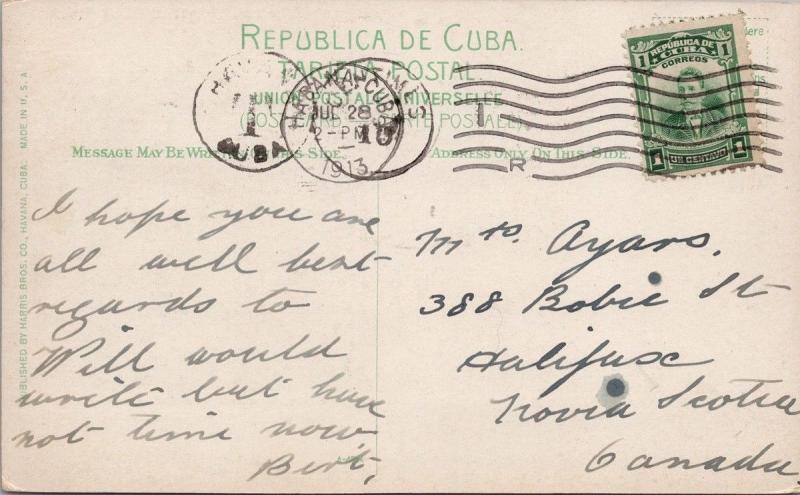 REPUBLICA DE CUBA.
TARJETA POSTAL
UNION POSTAL UNIVERSELLE
MESSAGE MAY BE WRITTEN ON THIS SIDE.
ADDRESS ONLY ON THIS SIDE.
HABANA, CUBA
JUL 28
2-PM
1913
CUBA
T
R
REPÚBLICA DE
CUBA
1 1
CORREOS
1 UN CENTAVO 1
PUBLISHED BY HARRIS BROS. CO., HAVANA, CUBA. MADE IN U. S. A.
I hope you are
all well best
regards to
Will would
write but have
not time now
Bert,
Mrs. Ayars,
388 Bobie St
Halifax
Novia Scotia
Canada